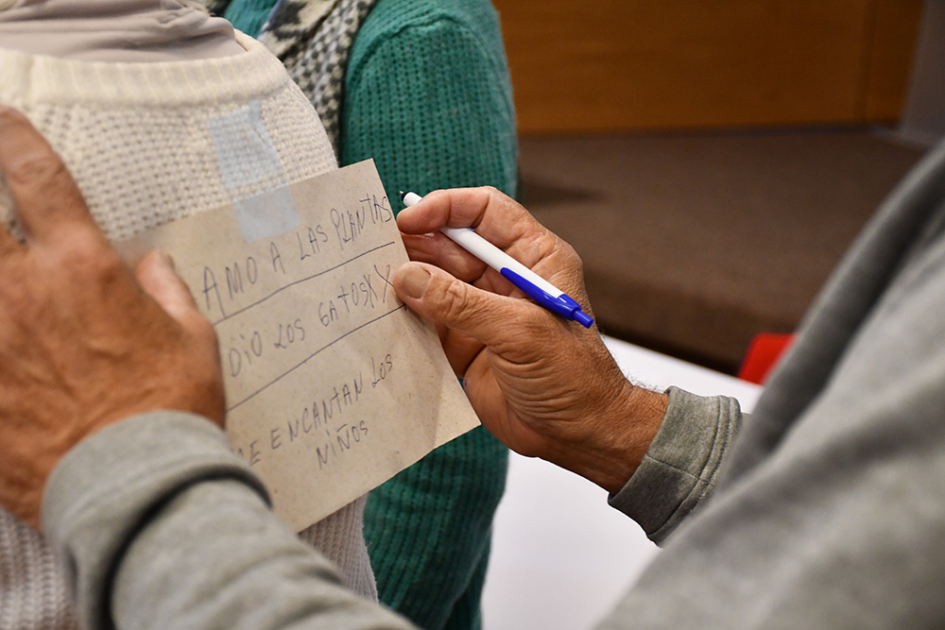 AMO A LAS PLANTAS
DIO LOS GATOS XX
E ENCANTAN LOS
NIÑOS